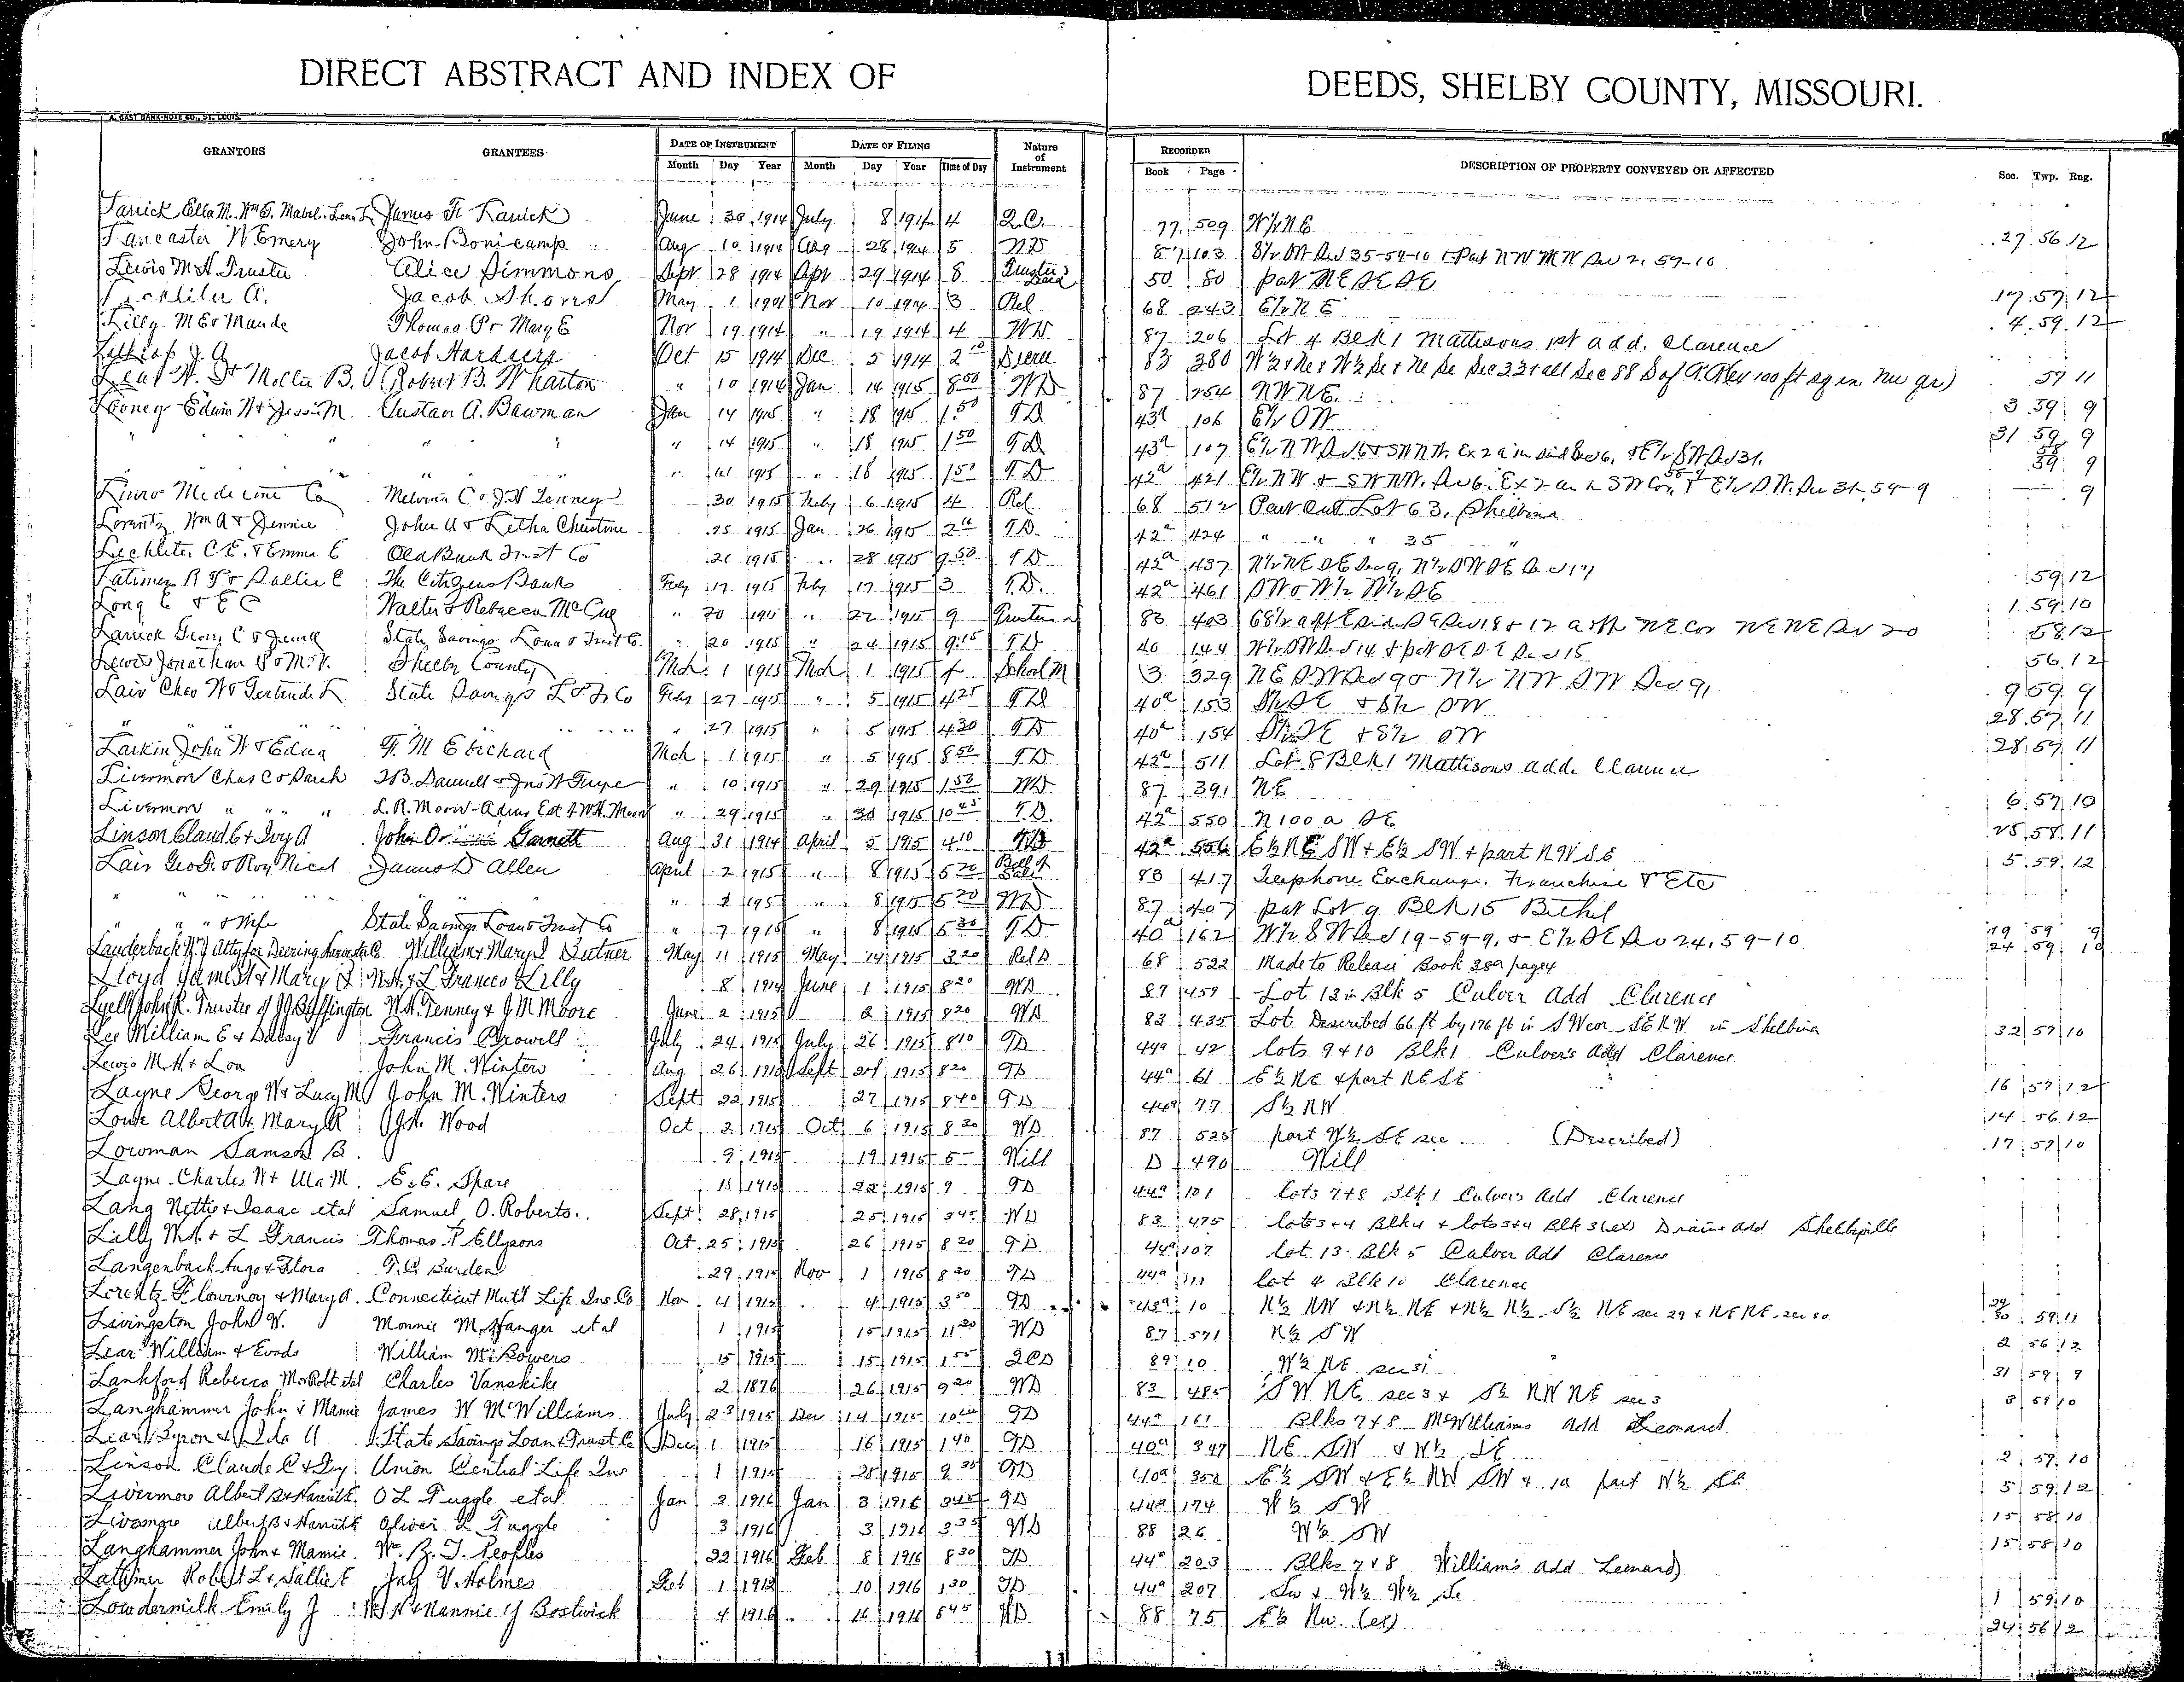 DIRECT ABSTRACT AND INDEX OF DEEDS, SHELBY COUNTY, MISSOURI.
A. GAST BANK-NOTE CO., ST. LOUIS.
GRANTORS GRANTEES DATE OF INSTRUMENT DATE OF FILING Nature of Instrument RECORDED DESCRIPTION OF PROPERTY CONVEYED OR AFFECTED Sec. Twp. Rng.
Month Day Year Month Day Year Time of Day Book Page
Ella M. Mabel James F. Larrick June 30 1914 July 8 1914 4 Q.C. 77 509 W½ NE 27 56 12
Lancaster W. Emery John Bonicamp Aug 10 1914 Aug 28 1914 5 WD 87 103
Lewis M.H. Trustee Alice Simmons Sept 28 1914 29 1914 8 Trustee's Deed 50 80 part NE SE SE 17 57 12
A. Jacob May 1 Nov 10 1914 3 Rel 68 243 E½ NE 4 59 12
Lilly M E & Maude Thomas P & Mary E Nov 19 1914 " 19 1914 4 WD 87 206 Lot 4 Blk 1 Mattisons 1st add. Clarence
Oct 15 1914 Dec 5 1914 2 10 83 380 57 11
Mollie B. Robert B. Wharton " 10 1914 Jan 14 1915 8 50 WD 87 254 NW NE 3 59 9
Looney Edwin W & Jessie M. Gustav A. Bawman Jan 14 1915 " 18 1915 1 50 TD 43a 106 E½ SW 31 59 9
" " " " " 14 1915 " 18 1915 1 50 TD 43a 107 59 9
" " " 1915 " 18 1915 1 50 TD 42a 421 9
Medicine Co Melvina C & J H Tenney 30 1915 Feby 6 1915 4 Rel 68 512 Part Out Lot 63, Shelbina
Lorentz Wm A & Jennie John A & Letha Christine 25 1915 Jan 26 1915 TD 42a 424 " " " 35 "
Lechliter C.E. & Emma E Old Bank Trust Co 1915 " 28 1915 9 50 TD 42a 437 59 12
Latimer R L & Sallie E The Citizens Bank Feby 17 1915 Feby 17 1915 3 T.D. 42a 461 SW & W½ W½ SE 1 59 10
Long E & E C Walter & Rebecca McCue " 20 1915 " 22 1915 9 83 403 58 12
Larrick State Savings Loan & Trust Co " 20 1915 " 24 1915 9 15 TD 40 144 56 12
Lewis Jonathan Shelby County Mch 1 1915 Mch 1 1915 4 School M 3 329 NE SW Sec 9 & N½ NW SW Sec 9, 9 59 9
Lair Chas W & Gertrude L State Savings L & Tr Co Feby 27 1915 " 5 1915 4 25 TD 40a 153 S½ SE & S½ SW 28 57 11
" " " " " " 27 1915 " 5 1915 4 30 TD 40a 154 S½ SE & S½ SW 28 57 11
Larkin John W & Edna F. M Eberhard Mch 1 1915 " 5 1915 8 50 TD 42a 511 Lot 8 Blk 1 Mattisons add. Clarence
Livermore Chas C & Sarah " 10 1915 " 29 1915 1 50 WD 87 391 NE 6 57 10
Livermore " " " " L. R. Moore Admr Est of W.H. Moore " 29 1915 " 30 1915 10 45 T.D. 42a 550 N 100 a SE 25 58 11
Linson Claud C & Ivy A John O. Garnett Aug 31 1914 April 5 1915 4 10 42a 556 E½ NE SW & E½ SW & part NW SE 5 59 12
Lair Geo F. & Roy Nicol James D Allen April 2 1915 " 8 1915 5 20 Bill of Sale 83 417 Telephone Exchange, Franchise & Etc
" " " 2 1915 " 8 1915 5 20 WD 87 407 part Lot 9 Blk 15 Bethel
" " " & Wife State Savings Loan & Trust Co " 7 1915 " 8 1915 5 30 TD 40a 162 W½ SW Sec 19-59-9, & E½ SE Sec 24, 59-10 19 59 9
24 59 10
Lauterback W.J Atty for Deering Harvester Co William & Mary S. Butner May 11 1915 May 14 1915 3 20 Rel D 68 522 Made to Release Book 38a page 4
Lloyd James H & Mary J. W.H. & L. Frances Lilly 8 1914 June 1 1915 8 20 WD 87 459 Lot 13 in Blk 5 Culver Add Clarence
Lyell John R. Trustee of J J Buffington W.H. Tenney & J M Moore June 2 1915 2 1915 8 20 WD 83 435 Lot Described 66 ft by 176 ft in SW cor SE NW in Shelbina 32 57 10
Lee William E & Daisy Francis Crowell July 24 1915 July 26 1915 8 10 TD 44a 42 lots 9 & 10 Blk 1 Culver's Add Clarence
Lewis M. H. & Lou John M. Winters Aug 26 1915 Sept 1915 8 20 TD 44a 61 E½ NE & part NE SE 16 57 12
Layne George W & Lucy M John M. Winters Sept 22 1915 27 1915 8 40 TD 44a 77 S½ NW 14 56 12
Lowe Albert A & Mary R J.A. Wood Oct 2 1915 Oct 6 1915 8 20 WD 87 525 part W½ SE sec (Described) 17 57 10
Lowman Samson B. 9 1915 19 1915 5 Will D 490 Will
Layne Charles W & Ula M. E. E. Spare 18 1915 22 1915 9 TD 44a 101 lots 7 & 8 Blk 1 Culvers Add Clarence
Lang Nettie & Isaac etal Samuel O. Roberts Sept 28 1915 25 1915 3 45 WD 83 475 lots 3 & 4 Blk 4 & lots 3 & 4 Blk 3 (ex) Drains add Shelbyville
Lilly W.H. & L Francis Thomas P Ellysons Oct 25 1915 26 1915 8 20 TD 44a 107 lot 13 Blk 5 Culver Add Clarence
Langenback Augo & Flora T.C. Burden 29 1915 Nov 1 1915 8 20 TD 44a 111 lot 4 Blk 10 Clarence
Lorentz Flournoy & Mary A. Connecticut Mut'l Life Ins. Co Nov 4 1915 4 1915 3 50 TD 43a 10 N½ NW & N½ NE & N½ N½ S½ NE sec 29 & NE NE sec 30 29/30 59 11
Livingston John W. Monnie M. Hanger etal 1 1915 15 1915 11 20 WD 87 571 N½ SW 2 56 12
Lear William & Evada William M. Bowers 15 1915 15 1915 1 55 QCD 89 10 W½ NE sec 31 31 59 9
Lankford Rebecca M & Robt etal Charles Vanskike 2 1876 26 1915 9 20 WD 83 485 SW NE sec 3 & S½ NW NE sec 3 3 57 10
Langhammer John & Mamie James W McWilliams July 23 1915 Dec 14 1915 10 TD 44a 161 Blks 7 & 8 McWilliams add Leonard
Lear Tyron & Ida A State Savings Loan & Trust Co Dec 1 1915 16 1915 1 40 TD 40a 347 NE SW & W½ SE 2 57 10
Linson Claude C & Ivy Union Central Life Ins 1 1915 28 1915 9 35 TD 40a 350 E½ SW & E½ NW SW & 10 part W½ SE 5 59 12
Livermore Albert B & Harriett O L Tuggle etal Jan 3 1916 Jan 3 1916 3 45 TD 44a 174 W½ SW 15 58 10
Livermore Albert B & Harriett Oliver L Tuggle 3 1916 3 1916 3 35 WD 88 26 W½ SW 15 58 10
Langhammer John & Mamie Wm. B. T. Peoples 22 1916 Feb 8 1916 8 30 TD 44a 203 Blks 7 & 8 William's add Leonard
Lattimer Robert L & Sallie E Jay V. Holmes Feb 1 1912 10 1916 1 30 TD 44a 207 Sw & W½ W½ Se 1 59 10
Lowdermilk Emily J W H & Nannie J Bostwick 4 1916 16 1916 8 45 WD 88 75 E½ Nw. (ex) 24 56 12